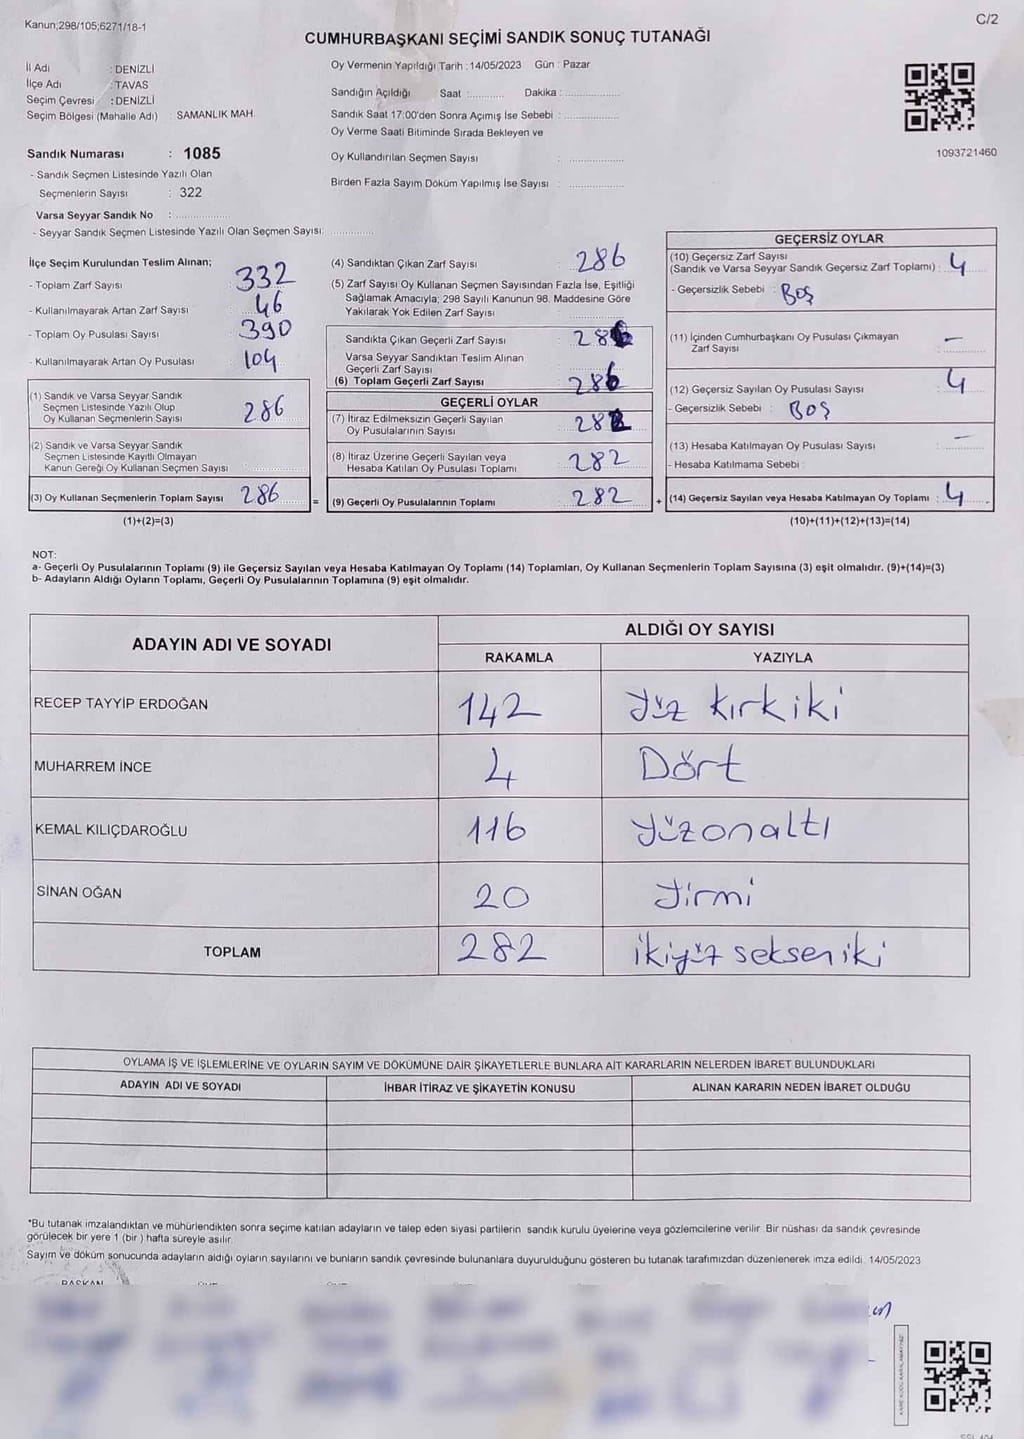 Kanun;298/105;6271/18-1
C/2
CUMHURBAŞKANI SEÇİMİ SANDIK SONUÇ TUTANAĞI
İl Adı : DENİZLİ
İlçe Adı : TAVAS
Seçim Çevresi : DENİZLİ
Seçim Bölgesi (Mahalle Adı) : SAMANLIK MAH.
Sandık Numarası : 1085
- Sandık Seçmen Listesinde Yazılı Olan
Seçmenlerin Sayısı : 322
Varsa Seyyar Sandık No : ..................
- Seyyar Sandık Seçmen Listesinde Yazılı Olan Seçmen Sayısı: .............
Oy Vermenin Yapıldığı Tarih : 14/05/2023 Gün : Pazar
Sandığın Açıldığı Saat :........... Dakika : ..................
Sandık Saat 17:00'den Sonra Açımış İse Sebebi : ..................
Oy Verme Saati Bitiminde Sırada Bekleyen ve
Oy Kullandırılan Seçmen Sayısı : ..................
Birden Fazla Sayım Döküm Yapılmış İse Sayısı : ..................
1093721460
İlçe Seçim Kurulundan Teslim Alınan;
- Toplam Zarf Sayısı : 332
- Kullanılmayarak Artan Zarf Sayısı : 46
- Toplam Oy Pusulası Sayısı : 390
- Kullanılmayarak Artan Oy Pusulası : 104
(1) Sandık ve Varsa Seyyar Sandık
Seçmen Listesinde Yazılı Olup
Oy Kullanan Seçmenlerin Sayısı : 286
(2) Sandık ve Varsa Seyyar Sandık
Seçmen Listesinde Kayıtlı Olmayan
Kanun Gereği Oy Kullanan Seçmen Sayısı : ..................
(3) Oy Kullanan Seçmenlerin Toplam Sayısı : 286 =
(1)+(2)=(3)
(4) Sandıktan Çıkan Zarf Sayısı : 286
(5) Zarf Sayısı Oy Kullanan Seçmen Sayısından Fazla İse, Eşitliği
Sağlamak Amacıyla, 298 Sayılı Kanunun 98. Maddesine Göre
Yakılarak Yok Edilen Zarf Sayısı : ..................
Sandıkta Çıkan Geçerli Zarf Sayısı : 286
Varsa Seyyar Sandıktan Teslim Alınan
Geçerli Zarf Sayısı :
(6) Toplam Geçerli Zarf Sayısı : 286
GEÇERLİ OYLAR
(7) İtiraz Edilmeksizin Geçerli Sayılan
Oy Pusulalarının Sayısı : 282
(8) İtiraz Üzerine Geçerli Sayılan veya
Hesaba Katılan Oy Pusulası Toplamı : 282
(9) Geçerli Oy Pusulalarının Toplamı : 282 +
GEÇERSİZ OYLAR
(10) Geçersiz Zarf Sayısı
(Sandık ve Varsa Seyyar Sandık Geçersiz Zarf Toplamı) : 4
- Geçersizlik Sebebi : BOŞ
(11) İçinden Cumhurbaşkanı Oy Pusulası Çıkmayan
Zarf Sayısı : —
(12) Geçersiz Sayılan Oy Pusulası Sayısı : 4
- Geçersizlik Sebebi : BOŞ
(13) Hesaba Katılmayan Oy Pusulası Sayısı : —
- Hesaba Katılmama Sebebi :
(14) Geçersiz Sayılan veya Hesaba Katılmayan Oy Toplamı : 4
(10)+(11)+(12)+(13)=(14)
NOT:
a- Geçerli Oy Pusulalarının Toplamı (9) ile Geçersiz Sayılan veya Hesaba Katılmayan Oy Toplamı (14) Toplamları, Oy Kullanan Seçmenlerin Toplam Sayısına (3) eşit olmalıdır. (9)+(14)=(3)
b- Adayların Aldığı Oyların Toplamı, Geçerli Oy Pusulalarının Toplamına (9) eşit olmalıdır.
ADAYIN ADI VE SOYADI ALDIĞI OY SAYISI
RAKAMLA YAZIYLA
RECEP TAYYİP ERDOĞAN 142 Yüz kırkiki
MUHARREM İNCE 4 Dört
KEMAL KILIÇDAROĞLU 116 Yüzonaltı
SİNAN OĞAN 20 Yirmi
TOPLAM 282 ikiyüz sekseniki
OYLAMA İŞ VE İŞLEMLERİNE VE OYLARIN SAYIM VE DÖKÜMÜNE DAİR ŞİKAYETLERLE BUNLARA AİT KARARLARIN NELERDEN İBARET BULUNDUKLARI
ADAYIN ADI VE SOYADI İHBAR İTİRAZ VE ŞİKAYETİN KONUSU ALINAN KARARIN NEDEN İBARET OLDUĞU
*Bu tutanak imzalandıktan ve mühürlendikten sonra seçime katılan adayların ve talep eden siyasi partilerin sandık kurulu üyelerine veya gözlemcilerine verilir. Bir nüshası da sandık çevresinde
görülecek bir yere 1 (bir ) hafta süreyle asılır.
Sayım ve döküm sonucunda adayların aldığı oyların sayılarını ve bunların sandık çevresinde bulunanlara duyurulduğunu gösteren bu tutanak tarafımızdan düzenlenerek imza edildi. 14/05/2023
BAŞKAN